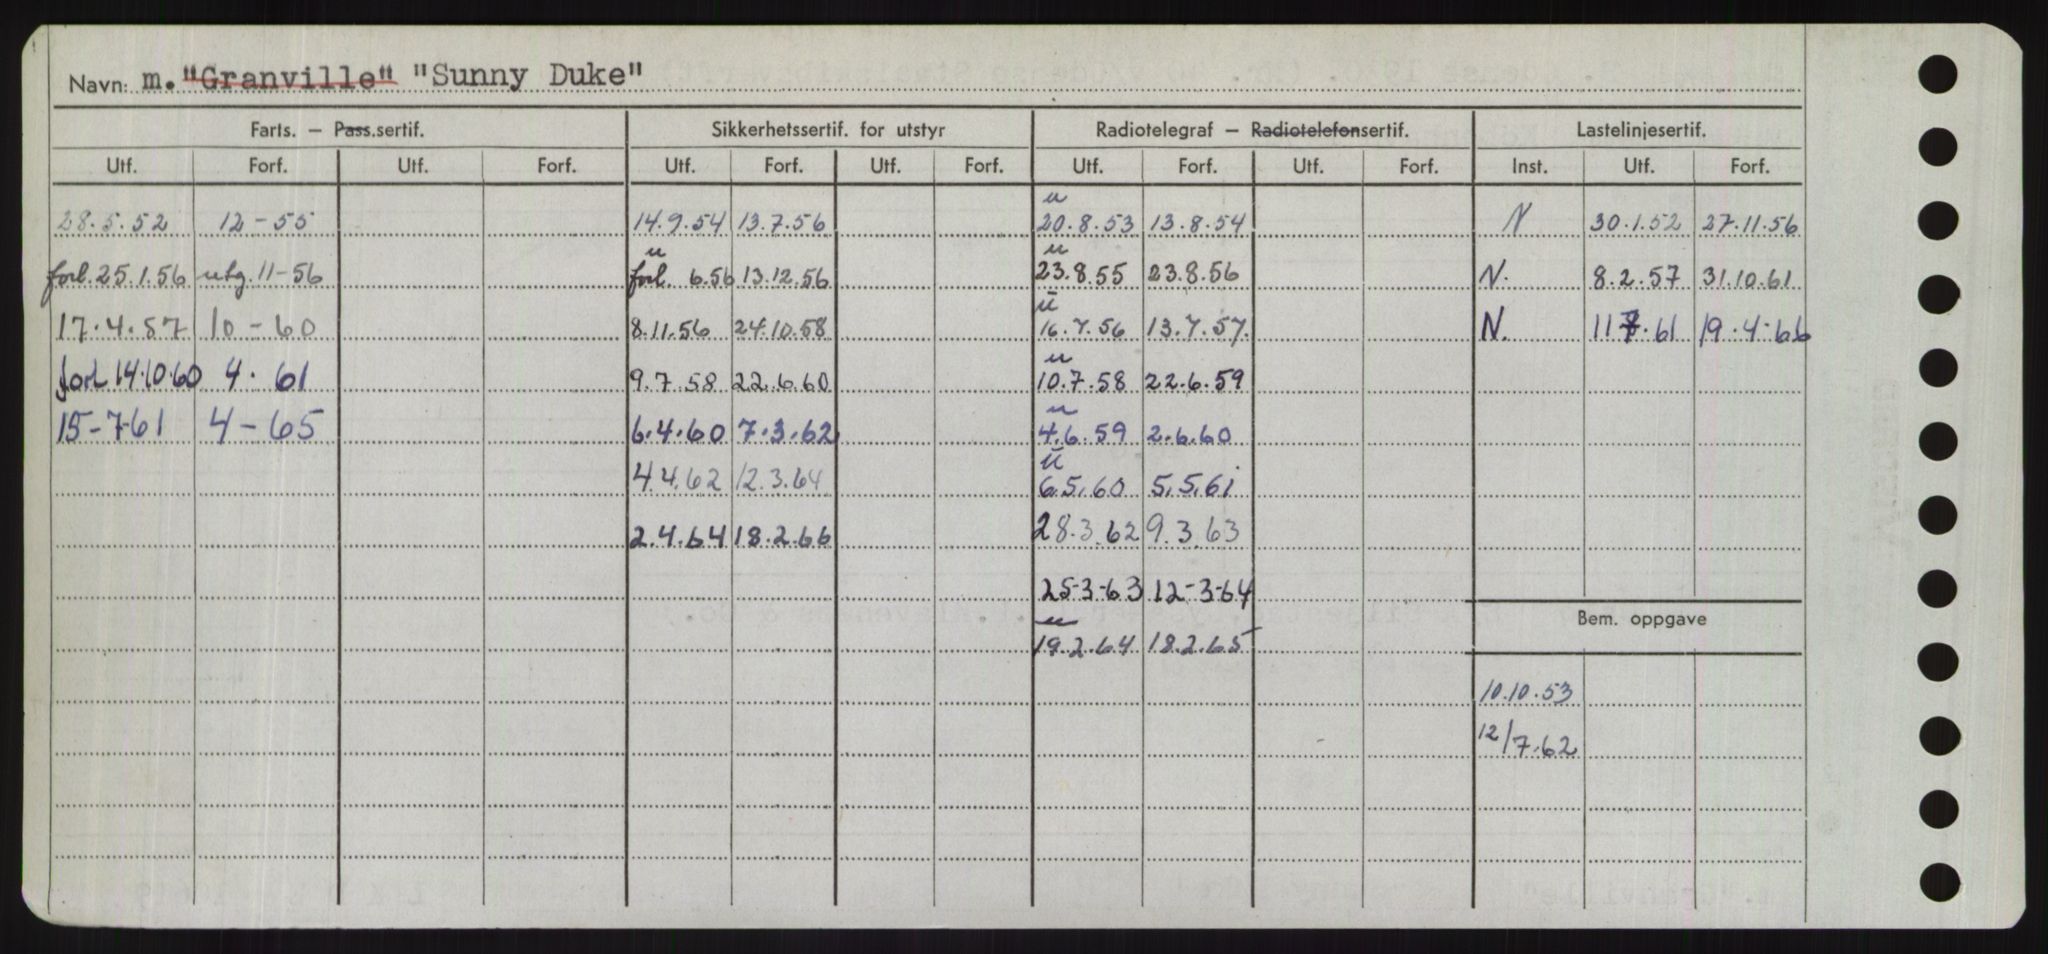 Navn: m. "Granville" "Sunny Duke"
Farts. — Pass.sertif. Sikkerhetssertif. for utstyr Radiotelegraf — Radiotelefonsertif. Lastelinjesertif.
Utf. Forf. Utf. Forf. Utf. Forf. Utf. Forf. Utf. Forf. Utf. Forf. Inst. Utf. Forf.
u
28.5.52 12-55 14.9.54 13.7.56 20.8.53 13.8.54 N 30.1.52 27.11.56
u u
forl. 25.1.56 utg. 11-56 forl. 6.56 13.12.56 23.8.55 23.8.56 N. 8.2.57 31.10.61
u
17.4.57 10-60 8.11.56 24.10.58 16.7.56 13.7.57. N. 11.7.61 19.4.66
u
forl 14.10.60 4. 61 9.7.58 22.6.60 10.7.58 22.6.59
u
15-7-61 4-65 6.4.60 7.3.62 4.6.59 2.6.60
u
4.4.62 12.3.64 6.5.60 5.5.61
2.4.64 18.2.66 28.3.62 9.3.63
25-3-63 12-3-64
Bem. oppgave
u
19.2.64 18.2.65
10.10.53
12/7.62